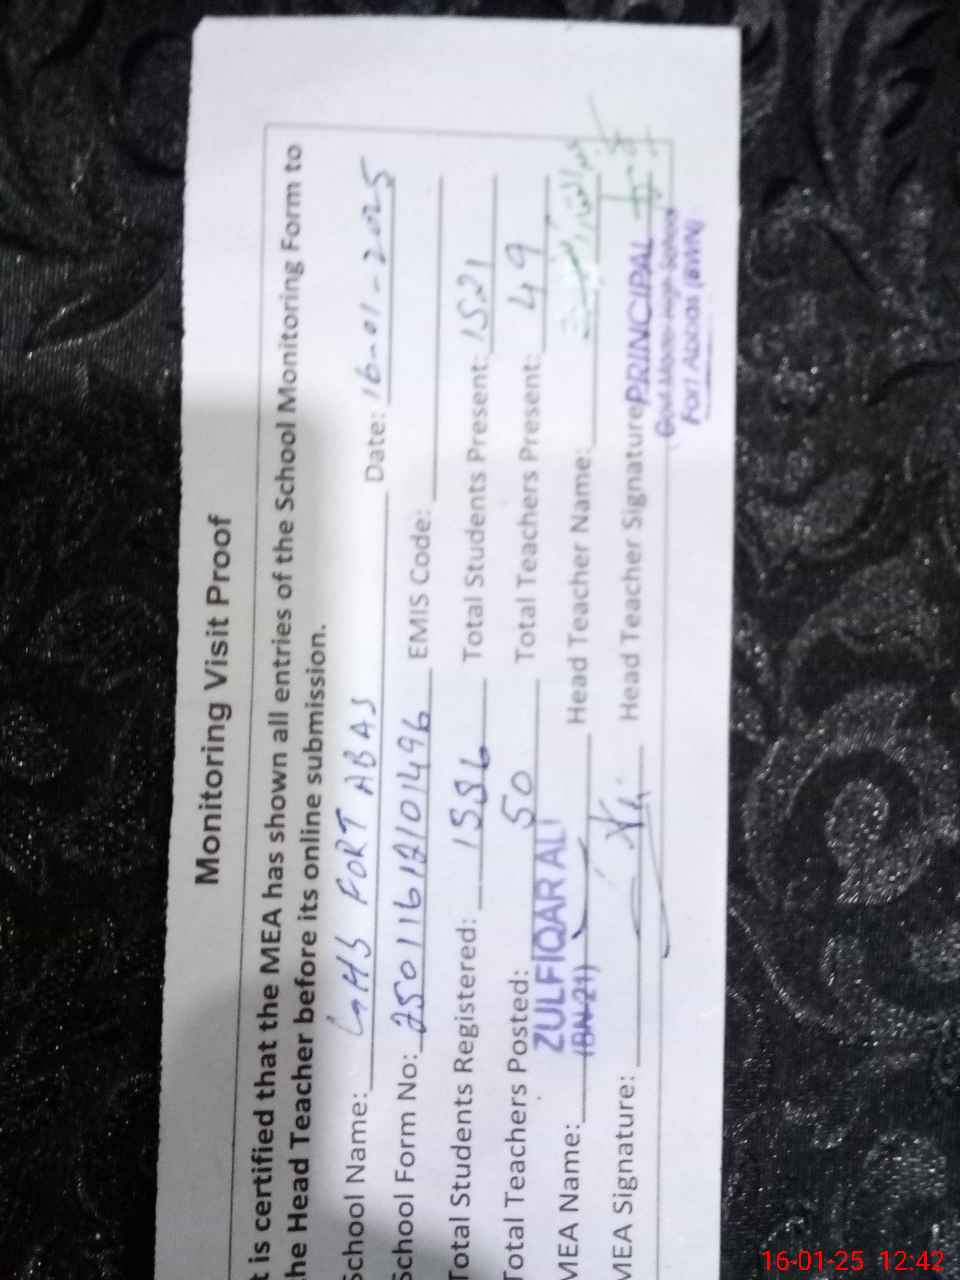 Monitoring Visit Proof
t is certified that the MEA has shown all entries of the School Monitoring Form to
he Head Teacher before its online submission.
School Name: GHS FORT ABAS Date: 16-01-2025
School Form No: 25011612101496 EMIS Code:
Total Students Registered: 1586 Total Students Present: 1521
Total Teachers Posted: 50 Total Teachers Present: 49
MEA Name: ZULFIQAR ALI Head Teacher Name:
(BN-21)
MEA Signature: Head Teacher Signature PRINCIPAL
Fort Abbas (BWN)
16-01-25 12:42